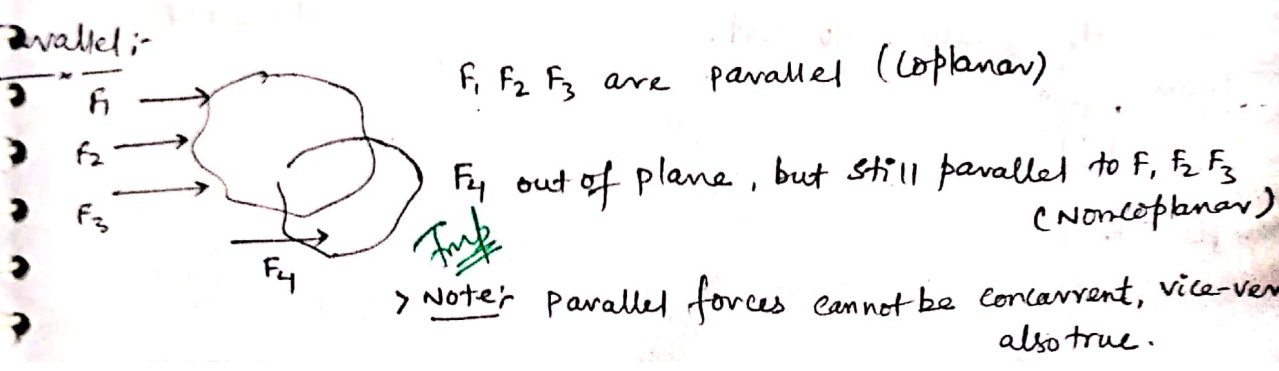 Parallel :-
F1
F2
F3
F4
F1 F2 F3 are parallel (Coplanar)
F4 out of plane, but still parallel to F1 F2 F3
(Noncoplanar)
Imp
> Note:- Parallel forces cannot be concurrent, vice-ver
also true.